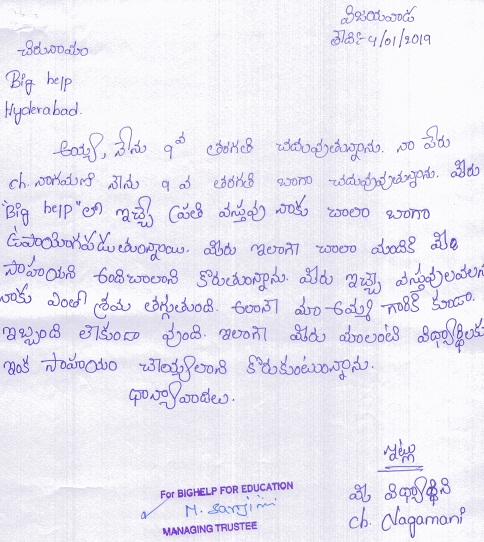 విజయవాడ
తేది:- 4/01/2019
చిరునామా
Big help
Hyderabad.
అయ్యా, నేను 9వ తరగతి చదువుతున్నాను. నా పేరు
ch. నాగమణి నేను 9 వ తరగతి బాగా చదువుతున్నాను. మీరు
"Big help" లో ఇచ్చే ప్రతి వస్తువు నాకు చాలా బాగా
ఉపయోగపడుతున్నాయి. మీరు ఇలాగే చాలా మందికి మీ
సాహయం అందించాలని కోరుతున్నాను. మీరు ఇచ్చే వస్తువులవలన
నాకు ఎంతో శ్రమ తగ్గుతుంది. అలానే మా అమ్మ గారికి కుడా.
ఇబ్బంది లేకుండా వుంది. ఇలాగే మీరు మాలంటి విద్యార్థులకు
ఇంక సాహయం చేయ్యాలని కోరుకుంటున్నాను.
ధాన్యావాదలు.
ఇట్లు
మీ విధ్యార్థిని
ch. Nagamani
For BIGHELP FOR EDUCATION
MANAGING TRUSTEE